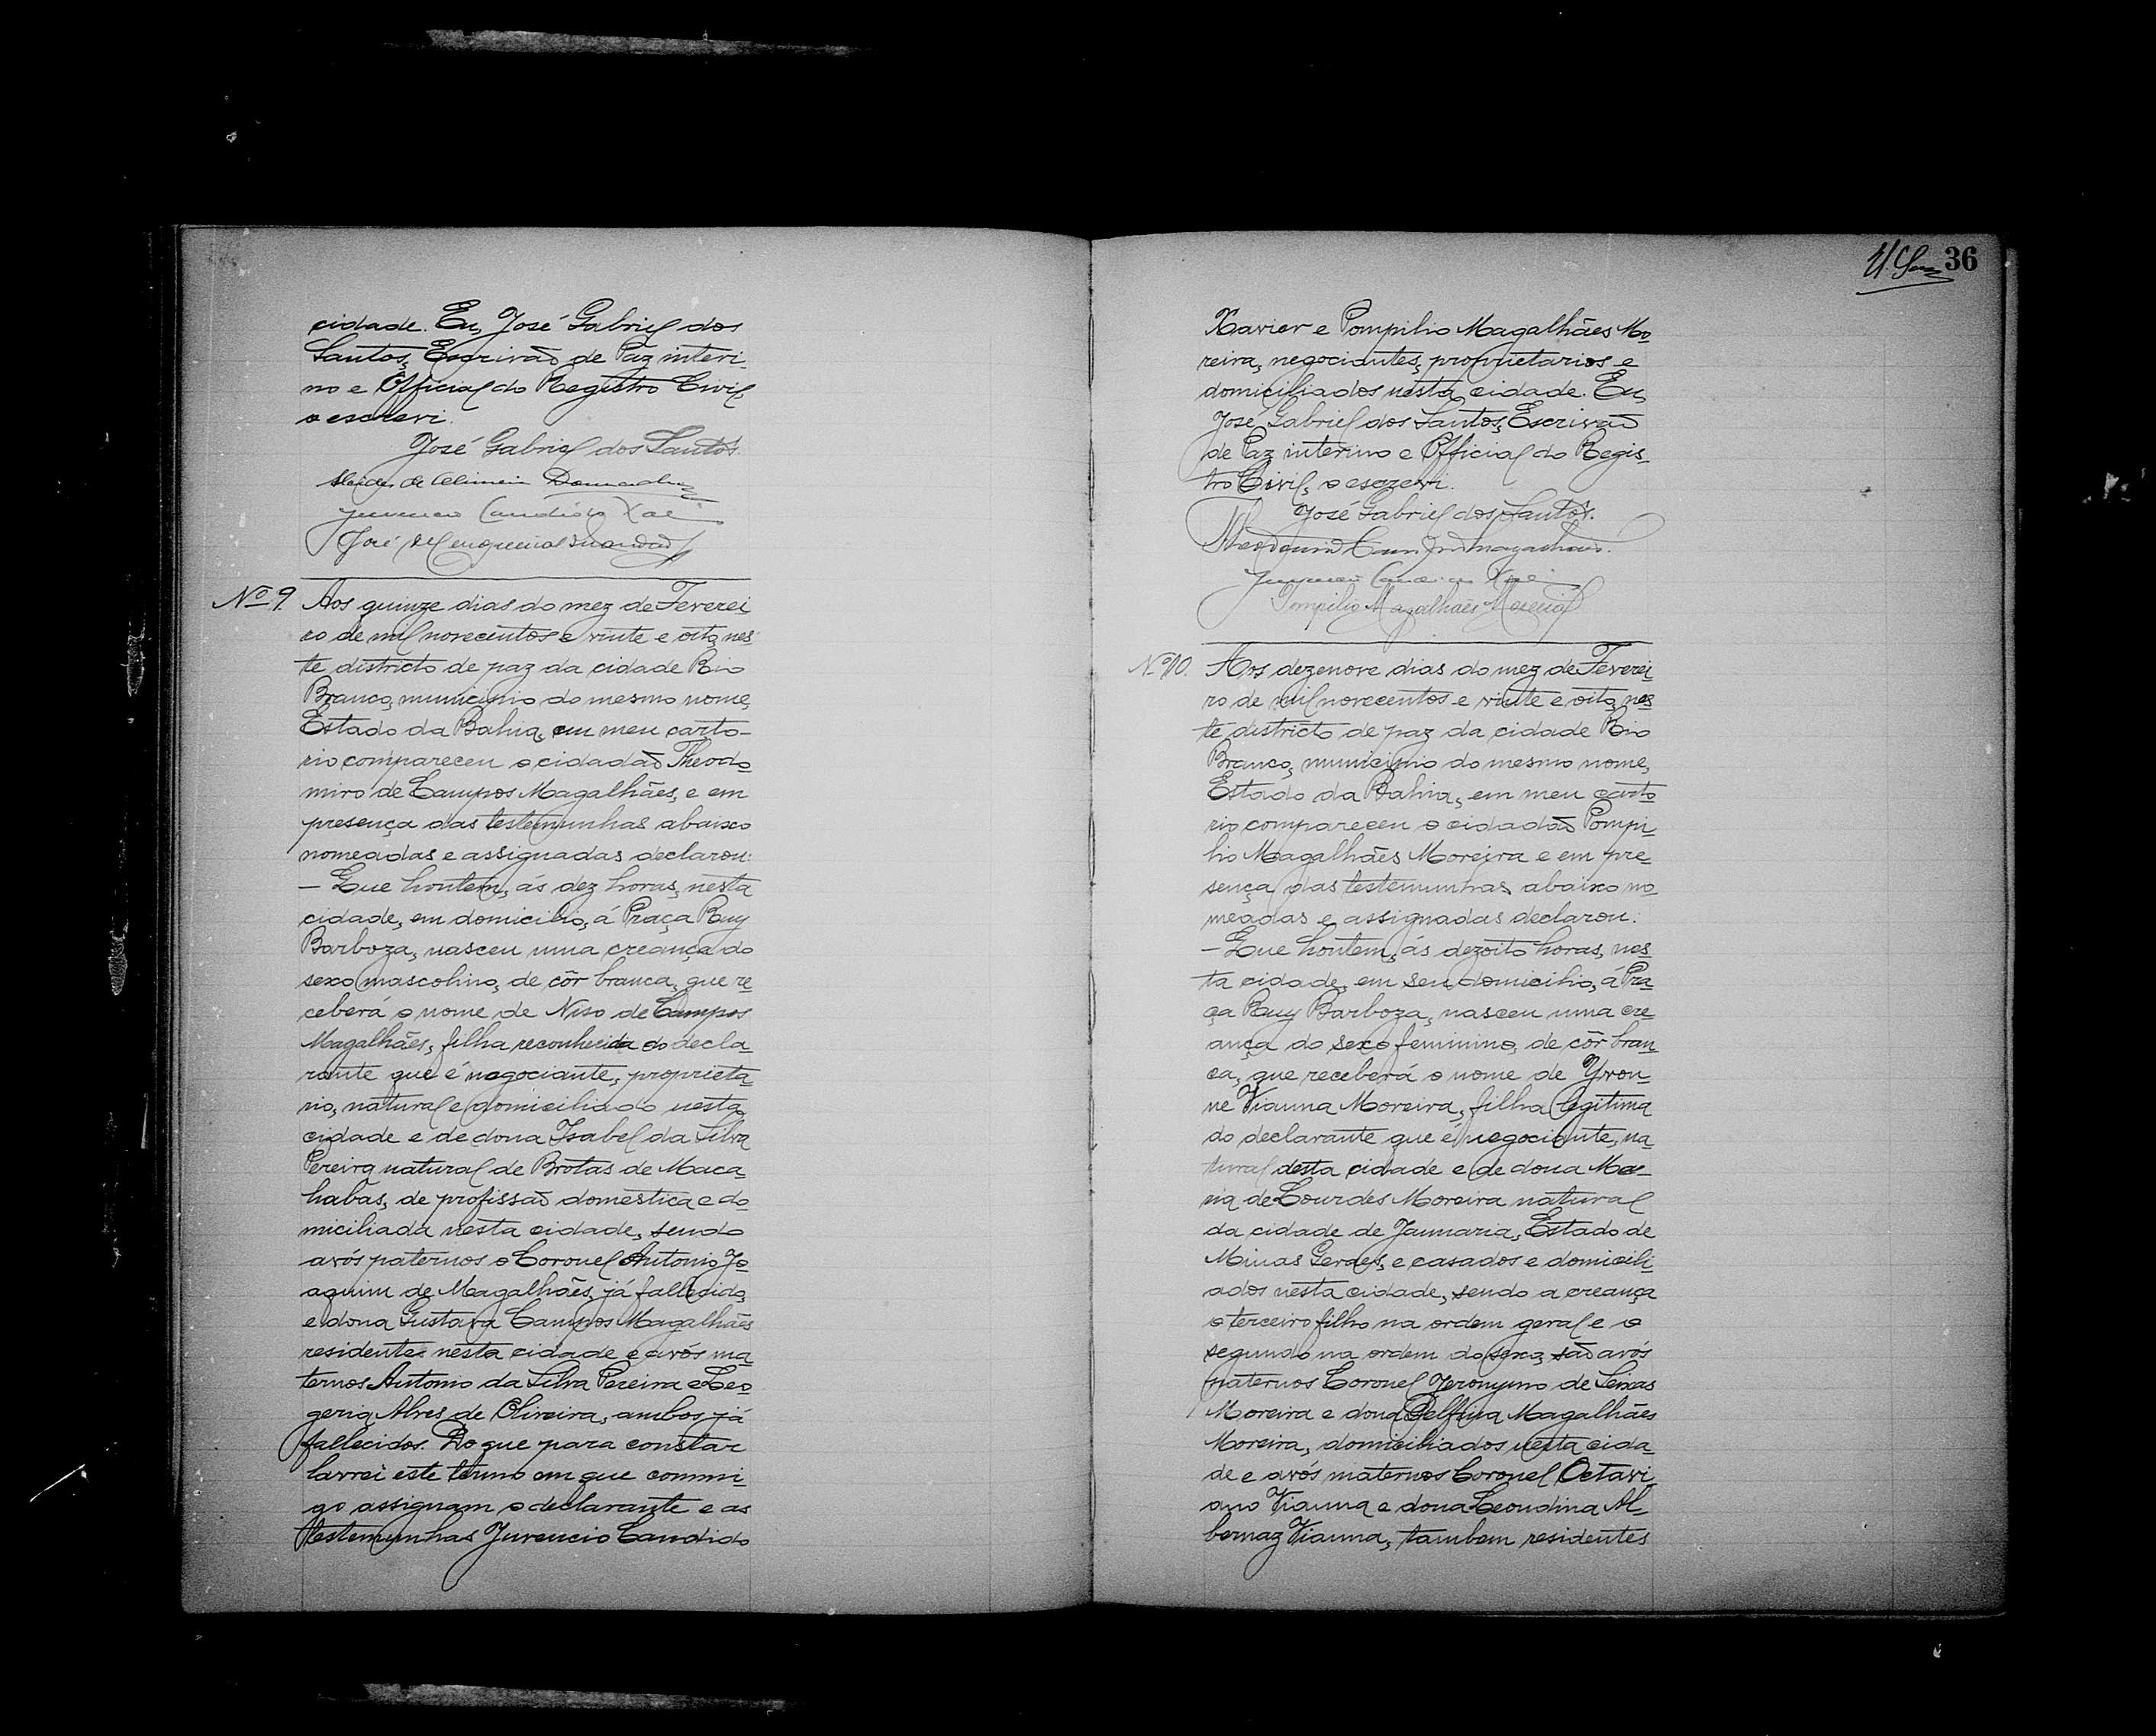 cidade. Eu, José Gabriel dos
Santos, Escrivão de Paz interi-
no e Official do Registro Civil,
o escrevi.
José Gabriel dos Santos.
de Almeida
Candido
José
Nº 9. Aos quinze dias do mez de Feverei
ro de mil novecentos e vinte e oito, nes-
te districto de paz da cidade Rio
Branco, municipio do mesmo nome,
Estado da Bahia, em meu carto-
rio compareceu o cidadão Theodo
miro de Campos Magalhães, e em
presença das testemunhas abaixo
nomeadas e assignadas declarou:
— Que hontem, ás dez horas, nesta
cidade, em domicilio, á Praça Ruy
Barboza, nasceu uma creança do
sexo mascolino, de côr branca, que re
ceberá o nome de Niso de Campos
Magalhães, filha reconhecida do decla
rante que é negociante, proprieta
rio, natural e domiciliado nesta
cidade e de dona Isabel da Silva
Pereira natural de Brotas de Maca
habas, de profissão domestica e do
miciliada nesta cidade, sendo
avós paternos o Coronel Antonio Jo
aquim de Magalhães, já fallecido,
e dona Gustava Campos Magalhães
residente nesta cidade e avós ma
ternos Antonio da Silva Pereira e Leo
geria Alves de Oliveira, ambos já
fallecidos. Do que para constar
lavrei este termo em que commi-
go assignam o declarante e as
testemunhas Juvencio Candido
36
Xavier e Pompilio Magalhães Mo
reira, negociantes, proprietarios e
domiciliados nesta cidade. Eu,
José Gabriel dos Santos, Escrivão
de Paz interino e Official do Regis-
tro Civil, o escrevi.
José Gabriel dos Santos.
Theodomiro Campos Magalhães.
Pompilio Magalhães Moreira
Nº 10. Aos dezenove dias do mez de Feverei
ro de mil novecentos e vinte e oito, nes
te districto de paz da cidade Rio
Branco, municipio do mesmo nome,
Estado da Bahia, em meu carto
rio compareceu o cidadão Pompi
lio Magalhães Moreira e em pre
sença das testemunhas abaixo no
meadas e assignadas declarou:
— Que hontem, ás dezoito horas, nes
ta cidade, em seu domicilio, á Pra
ça Ruy Barboza, nasceu uma cre
ança do sexo feminino, de côr bran
ca, que receberá o nome de Yvon-
ne Vianna Moreira, filha legitima
do declarante que é negociante, na
tural desta cidade e de dona Ma-
ria de Lourdes Moreira natural
da cidade de Januaria, Estado de
Minas Geraes, e casados e domicili
ados nesta cidade, sendo a creança
o terceiro filho na ordem geral e o
segundo na ordem do sexo, são avós
paternos Coronel Jeronymo de Seixas
Moreira e dona Delfina Magalhães
Moreira, domiciliados nesta cida
de e avós maternos Coronel Octavi
ano Vianna e dona Leondina Al-
bernaz Vianna, tambem residentes